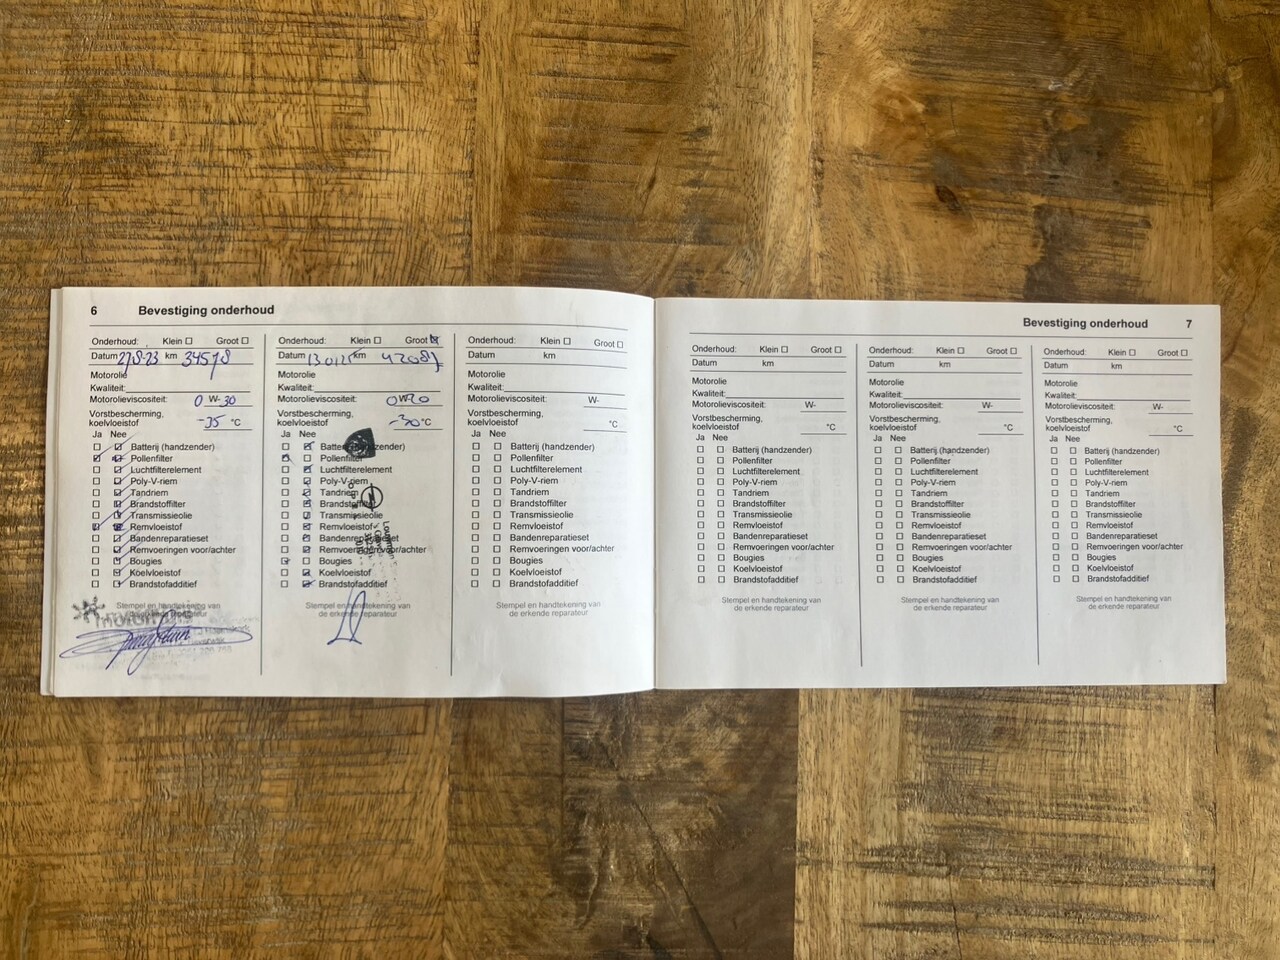 6 Bevestiging onderhoud
Onderhoud: Klein Groot
Datum 27-8-23 km 34578
Motorolie
Kwaliteit:
Motorolieviscositeit: 0 W- 30
Vorstbescherming,
koelvloeistof -35 °C
Ja Nee
Batterij (handzender)
Pollenfilter
Luchtfilterelement
Poly-V-riem
Tandriem
Brandstoffilter
Transmissieolie
Remvloeistof
Bandenreparatieset
Remvoeringen voor/achter
Bougies
Koelvloeistof
Brandstofadditief
Stempel en handtekening van
de erkende reparateur
Onderhoud: Klein Groot
Datum 130125 km 42087
Motorolie
Kwaliteit:
Motorolieviscositeit: 0W20
Vorstbescherming,
koelvloeistof -30 °C
Ja Nee
Batterij (handzender)
Pollenfilter
Luchtfilterelement
Poly-V-riem
Tandriem
Brandstoffilter
Transmissieolie
Remvloeistof
Bandenreparatieset
Remvoeringen voor/achter
Bougies
Koelvloeistof
Brandstofadditief
Stempel en handtekening van
de erkende reparateur
Onderhoud: Klein Groot
Datum km
Motorolie
Kwaliteit:
Motorolieviscositeit: W-
Vorstbescherming,
koelvloeistof °C
Ja Nee
Batterij (handzender)
Pollenfilter
Luchtfilterelement
Poly-V-riem
Tandriem
Brandstoffilter
Transmissieolie
Remvloeistof
Bandenreparatieset
Remvoeringen voor/achter
Bougies
Koelvloeistof
Brandstofadditief
Stempel en handtekening van
de erkende reparateur
Bevestiging onderhoud 7
Onderhoud: Klein Groot
Datum km
Motorolie
Kwaliteit:
Motorolieviscositeit: W-
Vorstbescherming,
koelvloeistof °C
Ja Nee
Batterij (handzender)
Pollenfilter
Luchtfilterelement
Poly-V-riem
Tandriem
Brandstoffilter
Transmissieolie
Remvloeistof
Bandenreparatieset
Remvoeringen voor/achter
Bougies
Koelvloeistof
Brandstofadditief
Stempel en handtekening van
de erkende reparateur
Onderhoud: Klein Groot
Datum km
Motorolie
Kwaliteit:
Motorolieviscositeit: W-
Vorstbescherming,
koelvloeistof °C
Ja Nee
Batterij (handzender)
Pollenfilter
Luchtfilterelement
Poly-V-riem
Tandriem
Brandstoffilter
Transmissieolie
Remvloeistof
Bandenreparatieset
Remvoeringen voor/achter
Bougies
Koelvloeistof
Brandstofadditief
Stempel en handtekening van
de erkende reparateur
Onderhoud: Klein Groot
Datum km
Motorolie
Kwaliteit:
Motorolieviscositeit: W-
Vorstbescherming,
koelvloeistof °C
Ja Nee
Batterij (handzender)
Pollenfilter
Luchtfilterelement
Poly-V-riem
Tandriem
Brandstoffilter
Transmissieolie
Remvloeistof
Bandenreparatieset
Remvoeringen voor/achter
Bougies
Koelvloeistof
Brandstofadditief
Stempel en handtekening van
de erkende reparateur